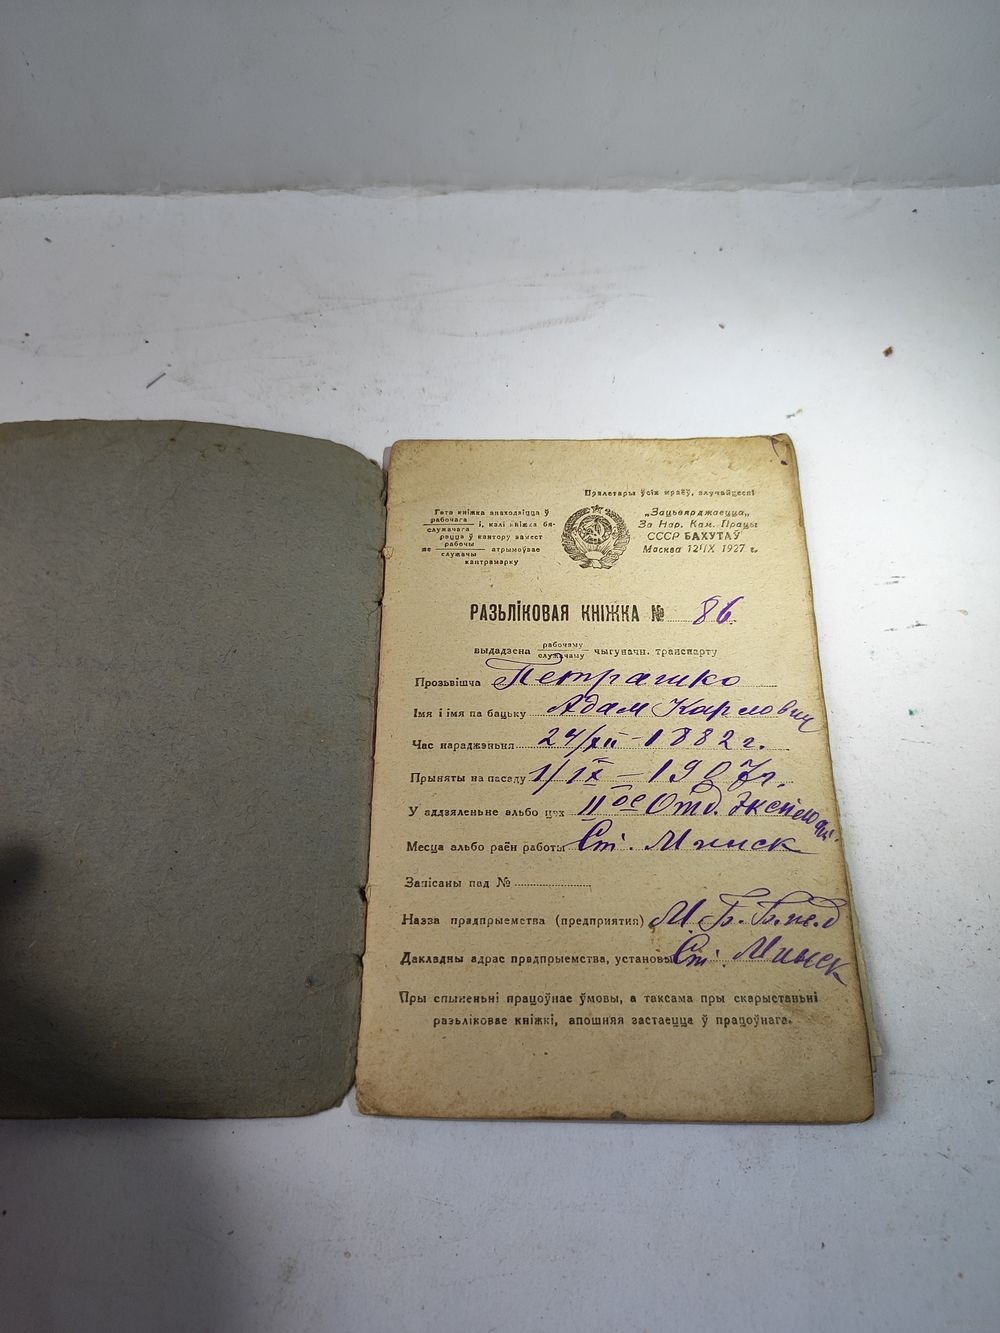 Пралетары ўсіх краёў, злучайцеся!
Гэта кніжка знаходзіцца ў
рабочага
служачага і, калі кніжка бя-
рэцца ў кантору замест
яе рабочы
служачы атрымоўвае
кантрамарку
„Зацьвярджаецца„
За Нар. Кам. Працы
СССР БАХУТАЎ
Масква 12/IX 1927 г.
РАЗЬЛІКОВАЯ КНІЖКА № 86
выдадзена рабочаму
служачаму чыгуначн. транспарту
Прозьвішча Петрашко
Імя і імя па бацьку Адам Карлович
Час нараджэньня 24/XII-1882 г.
Прыняты на пасаду 1/IX-1907 г.
У аддзяленьне альбо цэх II ое Отд. Эксплоат.
Месца альбо раён работы Ст. Минск
Запісаны пад №
Назва прадпрыемства (предприятия) М. Б. Б.
Дакладны адрас прадпрыемства, установы Ст. Минск
Пры спыненьні працоўнае ўмовы, а таксама пры скарыстаньні
разьліковае кніжкі, апошняя застаецца ў працоўнага.